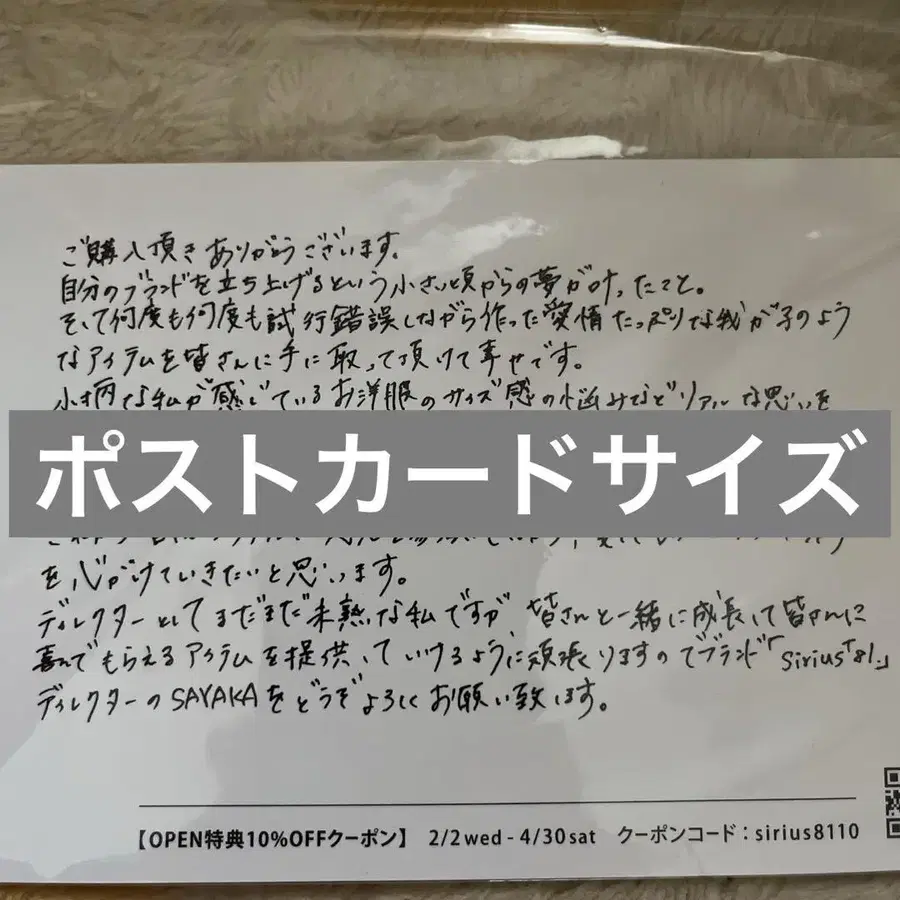 ご購入頂きありがとうございます。
自分のブランドを立ち上げるという小さい頃からの夢が叶ったこと。
そして何度も何度も試行錯誤しながら作った愛情たっぷりな我が子のよう
なアイテムを皆さんに手に取って頂けて幸せです。
小柄な私が感じているお洋服のサイズ感の悩みなどリアルな思いを
ポストカードサイズ
を心がけていきたいと思います。
ディレクターとしてまだまだ未熟な私ですが 皆さんと一緒に成長して皆さんに
喜んでもらえるアイテムを提供していけるように頑張りますのでブランド「Sirius「81.」
ディレクターのSAYAKAをどうぞよろしくお願い致します。
【OPEN特典10%OFFクーポン】 2/2wed - 4/30sat クーポンコード：sirius8110